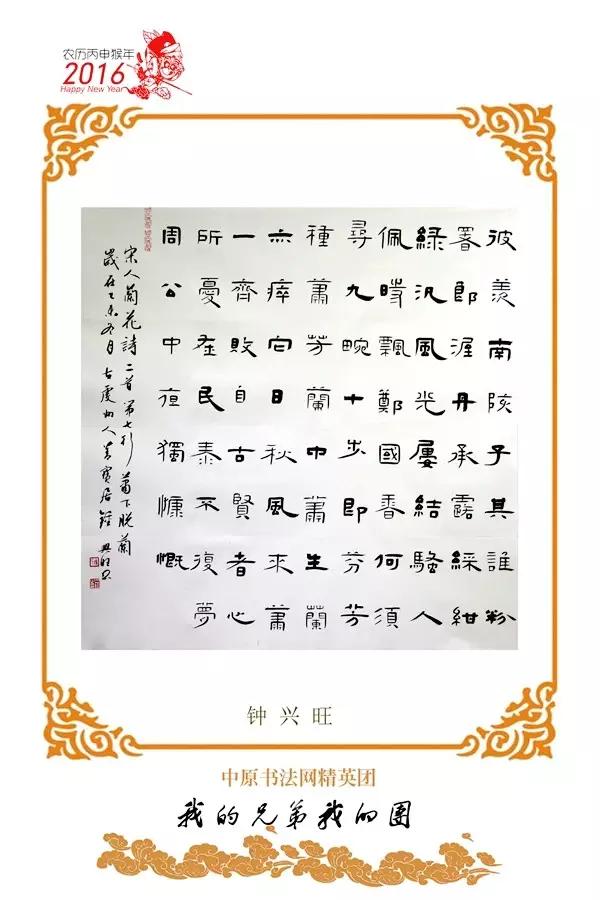 农历丙申猴年
2016
Happy New Year
彼羡南陔子其誰粉
署郎渥丹承露綵紺
緑汎風光屢結騷人
佩時飄鄭國香何須
尋九畹十步即芬芳
種蕭芳蘭中蕭生蘭
亦瘁它日秋風来蕭
一齊敗自古賢者心
所憂在民泰不復夢
周公中夜獨慷慨
宋人蘭花詩二首第七行蕭下脱蘭
歲在乙未冬月古虔州人寶居鍾興旺
钟兴旺
中原书法网精英团
我的兄弟我的团